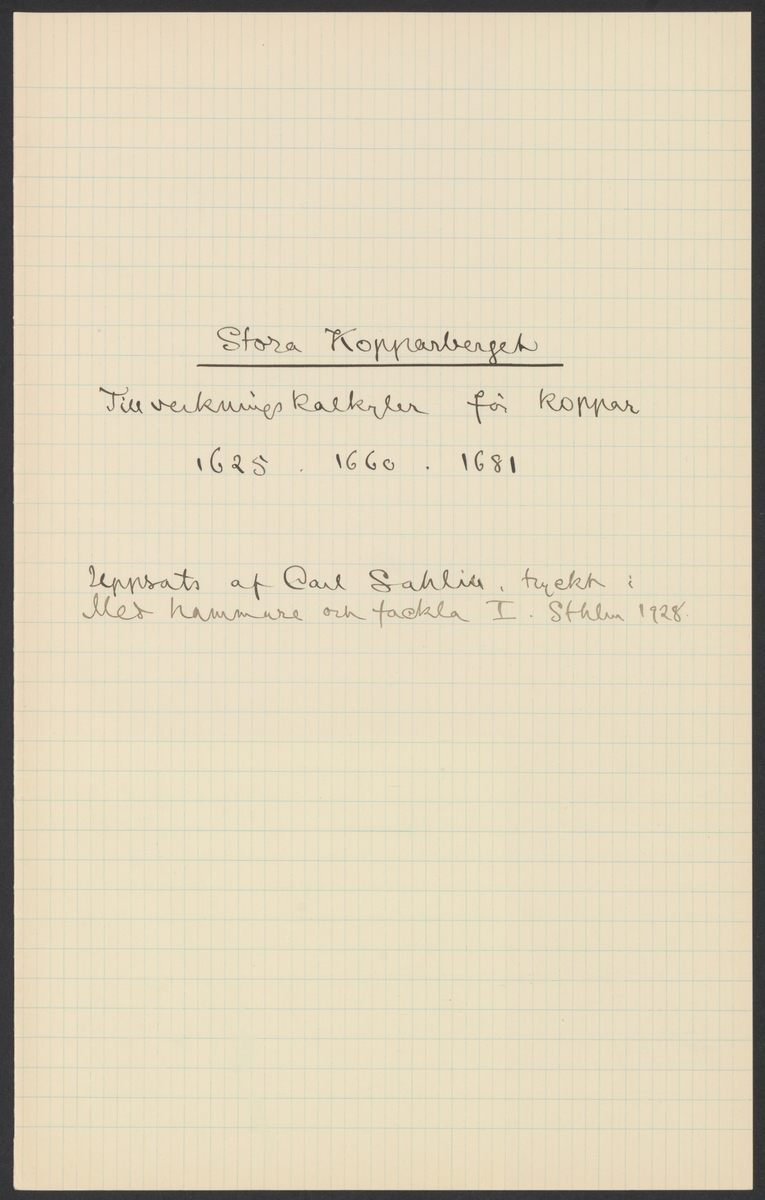 Stora Kopparberget
Tillverkningskalkyler för koppar
1625 . 1660 . 1681
Uppsats af Carl Sahlin, tryckt i
Med hammare och fackla I. Sthlm 1928.